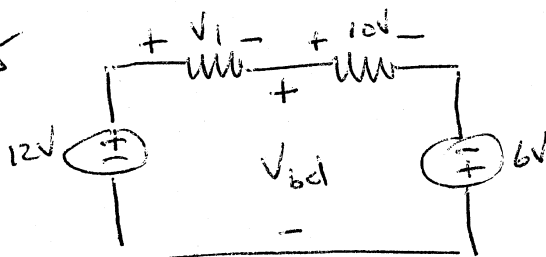 + V1 - + 10V -
+
12V + - Vbd - + 6V
-